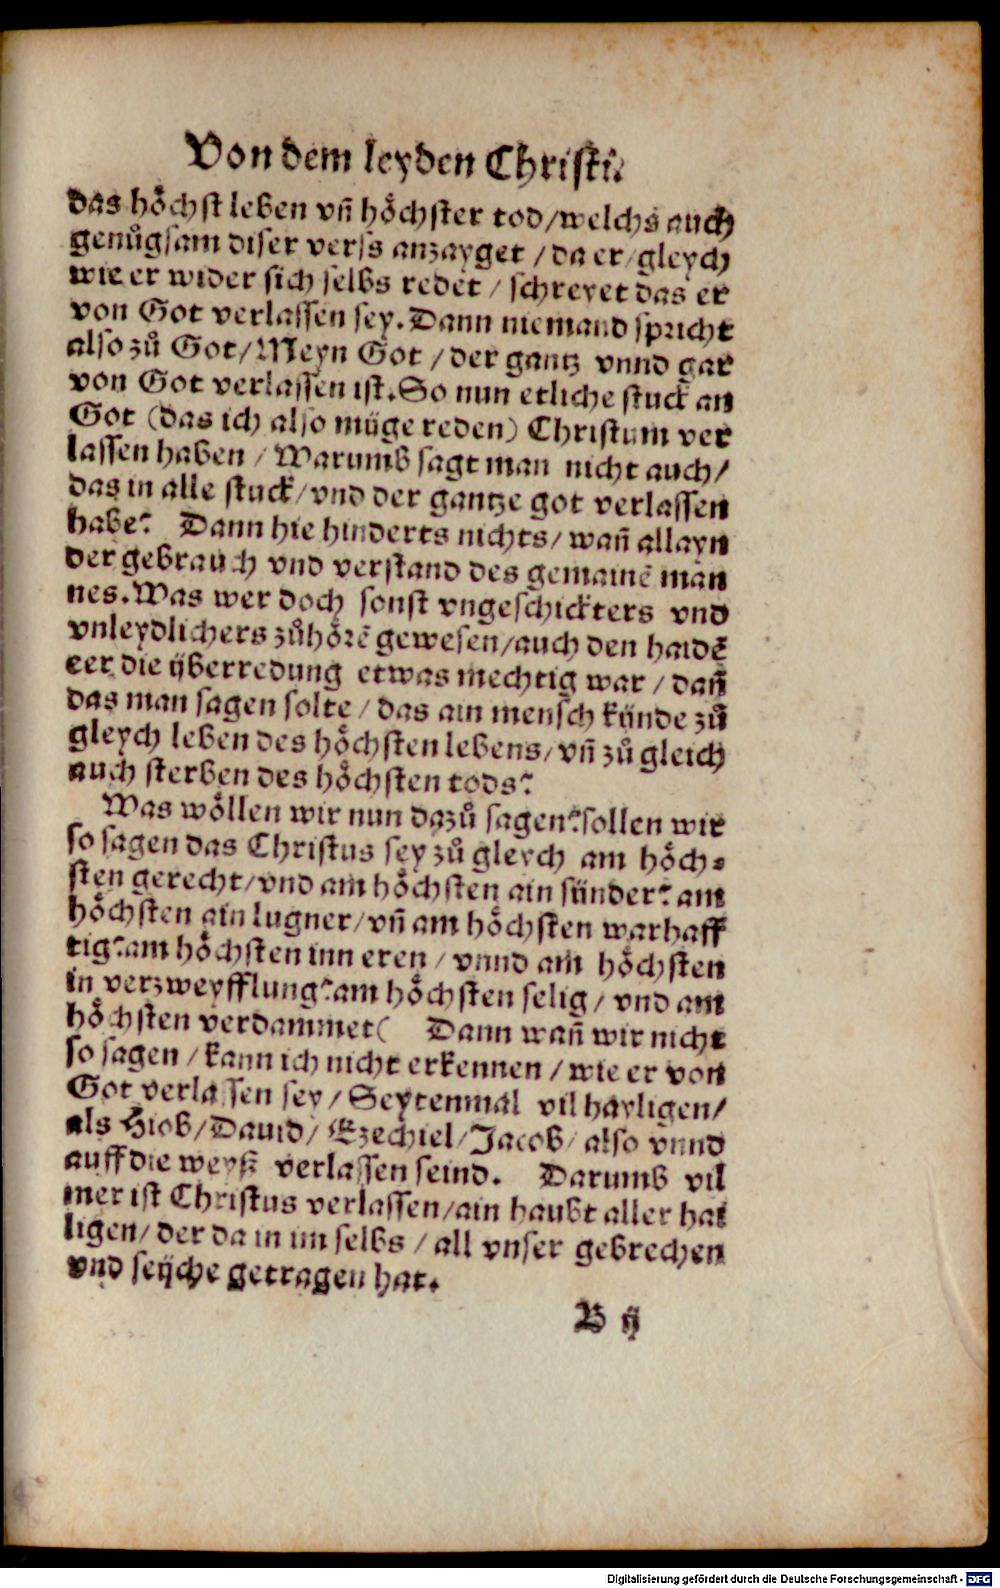 Von dem leyden Christi.
das hoͤchst leben vñ hoͤchster tod/welchs auch
genuͦgsam diser verss anzayget / da er/gleych
wie er wider sich selbs redet / schreyet das er
von Got verlassen sey. Dann niemand spricht
also zuͦ Got/Meyn Got / der gantz vnnd gar
von Got verlassen ist. So nun etliche stuck an
Got (das ich also müge reden) Christum ver
lassen haben / Warumb sagt man nicht auch/
das in alle stuck/vnd der gantze got verlassen
habe? Dann hie hinderts nichts/ wañ allayn
der gebrauch vnd verstand des gemainē man
nes. Was wer doch sonst vngeschickters vnd
vnleydlichers zuͦhoͤrē gewesen/auch den haidē
eer die ÿberredung etwas mechtig war / dañ
das man sagen solte / das ain mensch künde zuͦ
gleych leben des hoͤchsten lebens/vñ zuͦ gleich
auch sterben des hoͤchsten tods?
Was woͤllen wir nun dazuͦ sagen? sollen wir
so sagen das Christus sey zuͦ gleych am hoͤch⸗
sten gerecht/vnd am hoͤchsten ain sünder? am
hoͤchsten ain lugner/vñ am hoͤchsten warhaff
tig? am hoͤchsten inn eren / vnnd am hoͤchsten
in verzweyfflung? am hoͤchsten selig / vnd am
hoͤchsten verdammet( Dann wañ wir nicht
so sagen / kann ich nicht erkennen / wie er von
Got verlassen sey / Seytenmal vil hayligen/
als Hiob/Dauid/ Ezechiel/Jacob/ also vnnd
auff die weyß verlassen seind. Darumb vil
mer ist Christus verlassen/ain haubt aller hai
ligen/ der da in im selbs / all vnser gebrechen
vnd seÿche getragen hat.
B ij
Digitalisierung gefördert durch die Deutsche Forschungsgemeinschaft - DFG